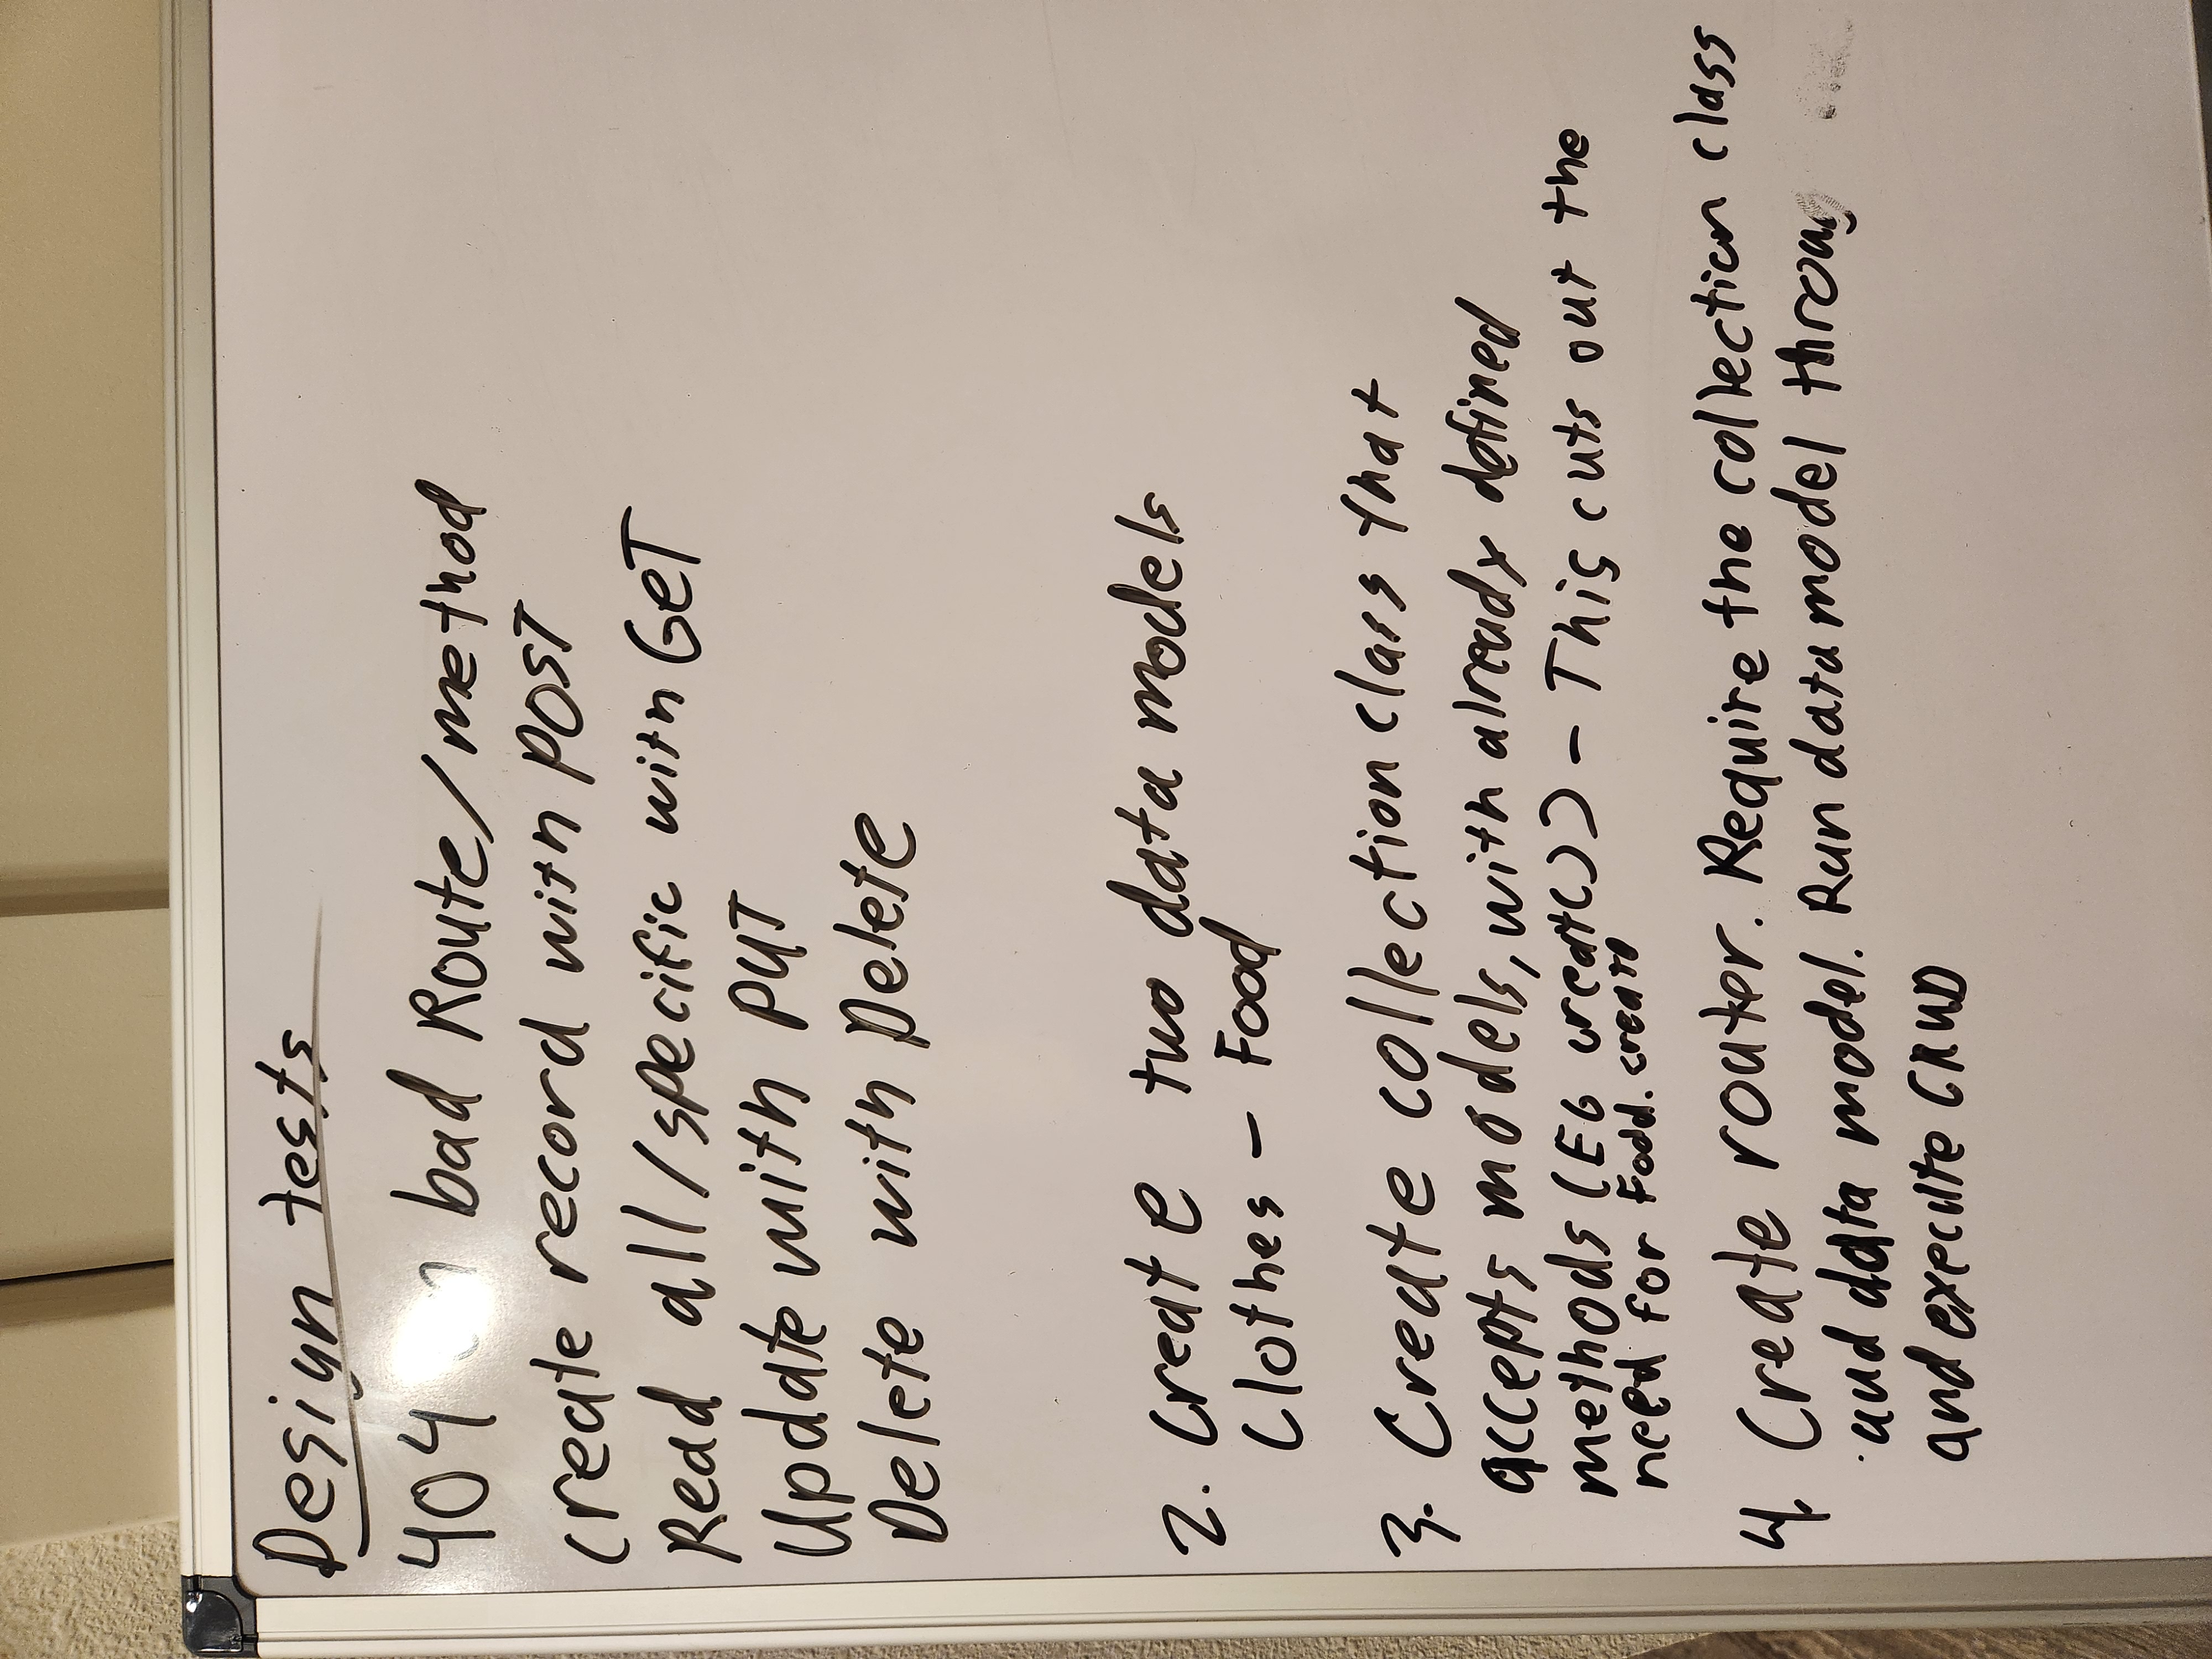 Design tests
404 on bad Route/method
create record with POST
Read all/specific with GeT
Update with PUT
Delete with Delete
2. Create two data models
Clothes - Food
3. Create collection class that
accepts models, with already defined
methods (EG creat()) - This cuts out the
need for Food. create
4. Create router. Require the collection class
and data model. Run data model throug
and execute CRUD